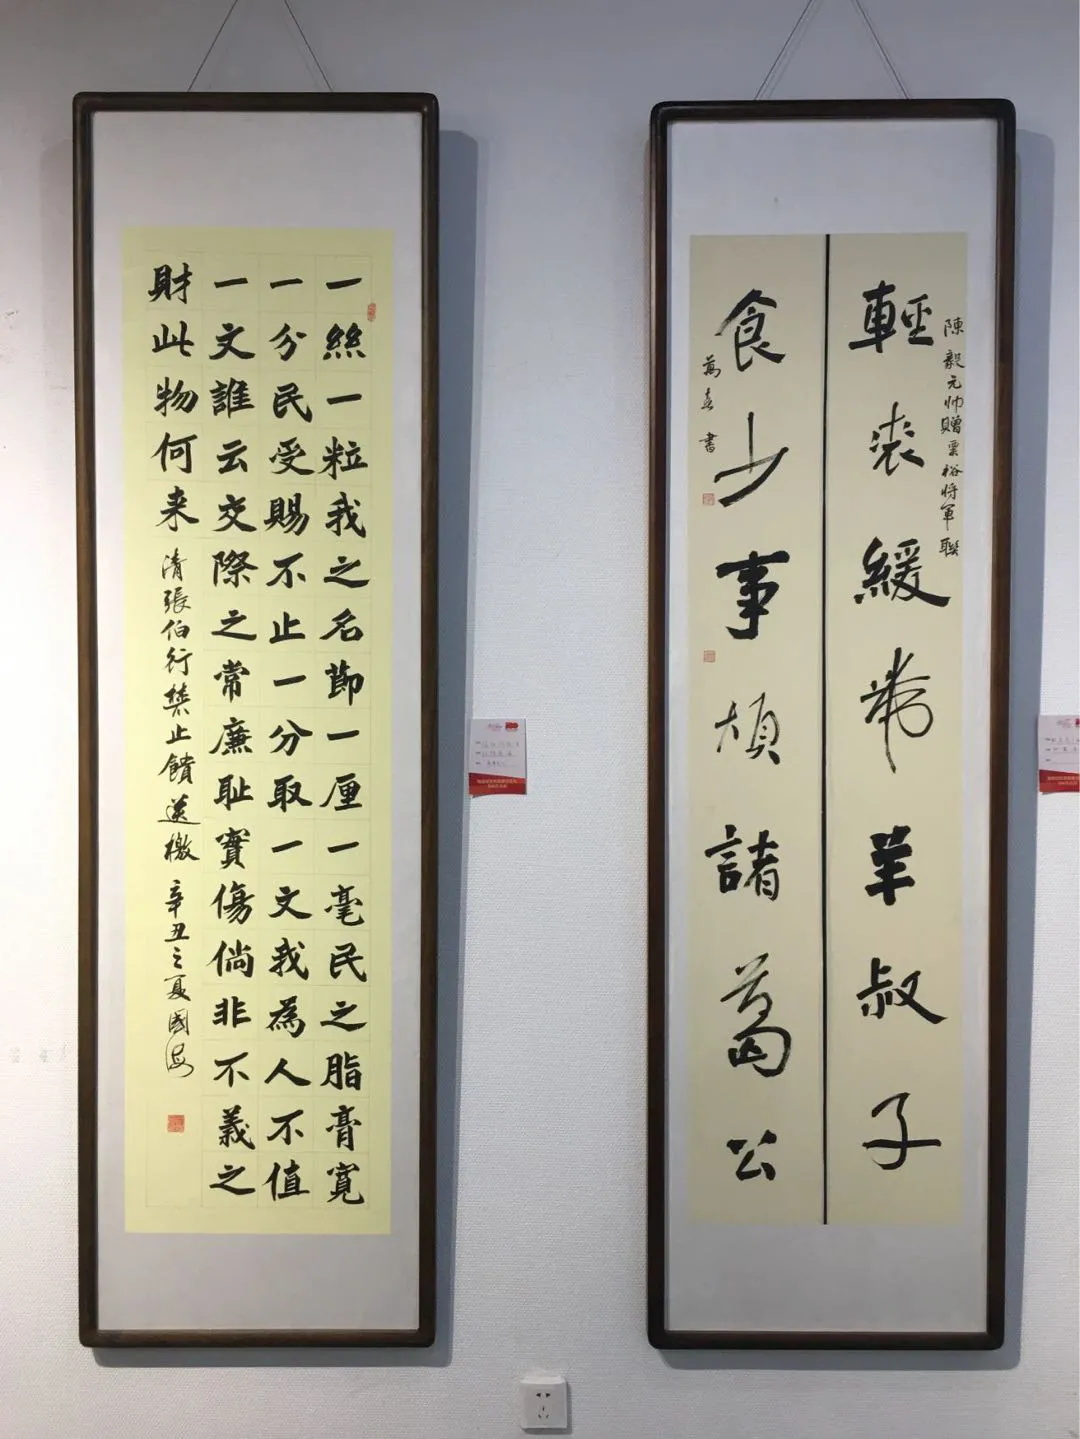 一絲一粒我之名節一厘一毫民之脂膏寬
一分民受賜不止一分取一文我為人不值
一文誰云交際之常廉耻實傷倘非不義之
財此物何来 清張伯行禁止饋送檄 辛丑之夏國海
陳毅元帅贈粟裕将軍聯
輕裘緩帶羊叔子
食少事煩諸葛公
萬 書